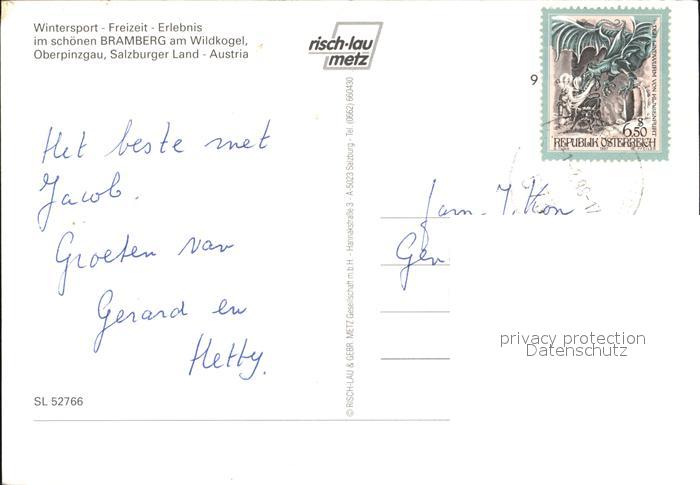 Wintersport - Freizeit - Erlebnis
im schönen BRAMBERG am Wildkogel,
Oberpinzgau, Salzburger Land - Austria
risch-lau
metz
9
6.50 S
REPUBLIK ÖSTERREICH
Het beste met
Jacob.
Groeten van
Gerard en
Hetty.
Fam. J. Kon
Gen
privacy protection
Datenschutz
SL 52766
© RISCH-LAU & GEBR. METZ Gesellschaft m.b.H. - Hannakstraße 3 - A-5023 Salzburg - Tel. (0662) 660430